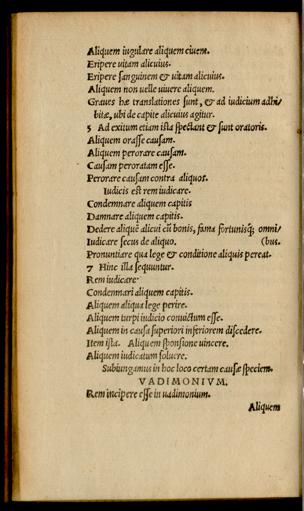 Aliquem iugulare aliquem ciuem.
Eripere uitam alicuius.
Eripere sanguinem & uitam alicuius.
Aliquem non uelle uiuere aliquem.
Graues hæ translationes sunt, & ad iudicium adhi-
bitæ, ubi de capite alicuius agitur.
5 Ad exitum etiam ista spectant & sunt oratoris.
Aliquem orasse causam.
Aliquem perorare causam.
Causam peroratam esse.
Perorare causam contra aliquos.
Iudicis est rem iudicare.
Condemnare aliquem capitis
Damnare aliquem capitis.
Dedere aliquē alicui cū bonis, fama fortunisq; omni/
Iudicare secus de aliquo. (bus.
Pronuntiare qua lege & conditione aliquis pereat.
7 Hinc illa sequuntur.
Rem iudicare.
Condemnari aliquem capitis.
Aliquem aliqua lege perire.
Aliquem turpi iudicio conuictum esse.
Aliquem in causa superiori inferiorem discedere.
Item ista. Aliquem sponsione uincere.
Aliquem iudicatum soluere.
Subiungamus in hoc loco certam causæ speciem.
VADIMONIVM.
Rem incipere esse in uadimonium.
Aliquem